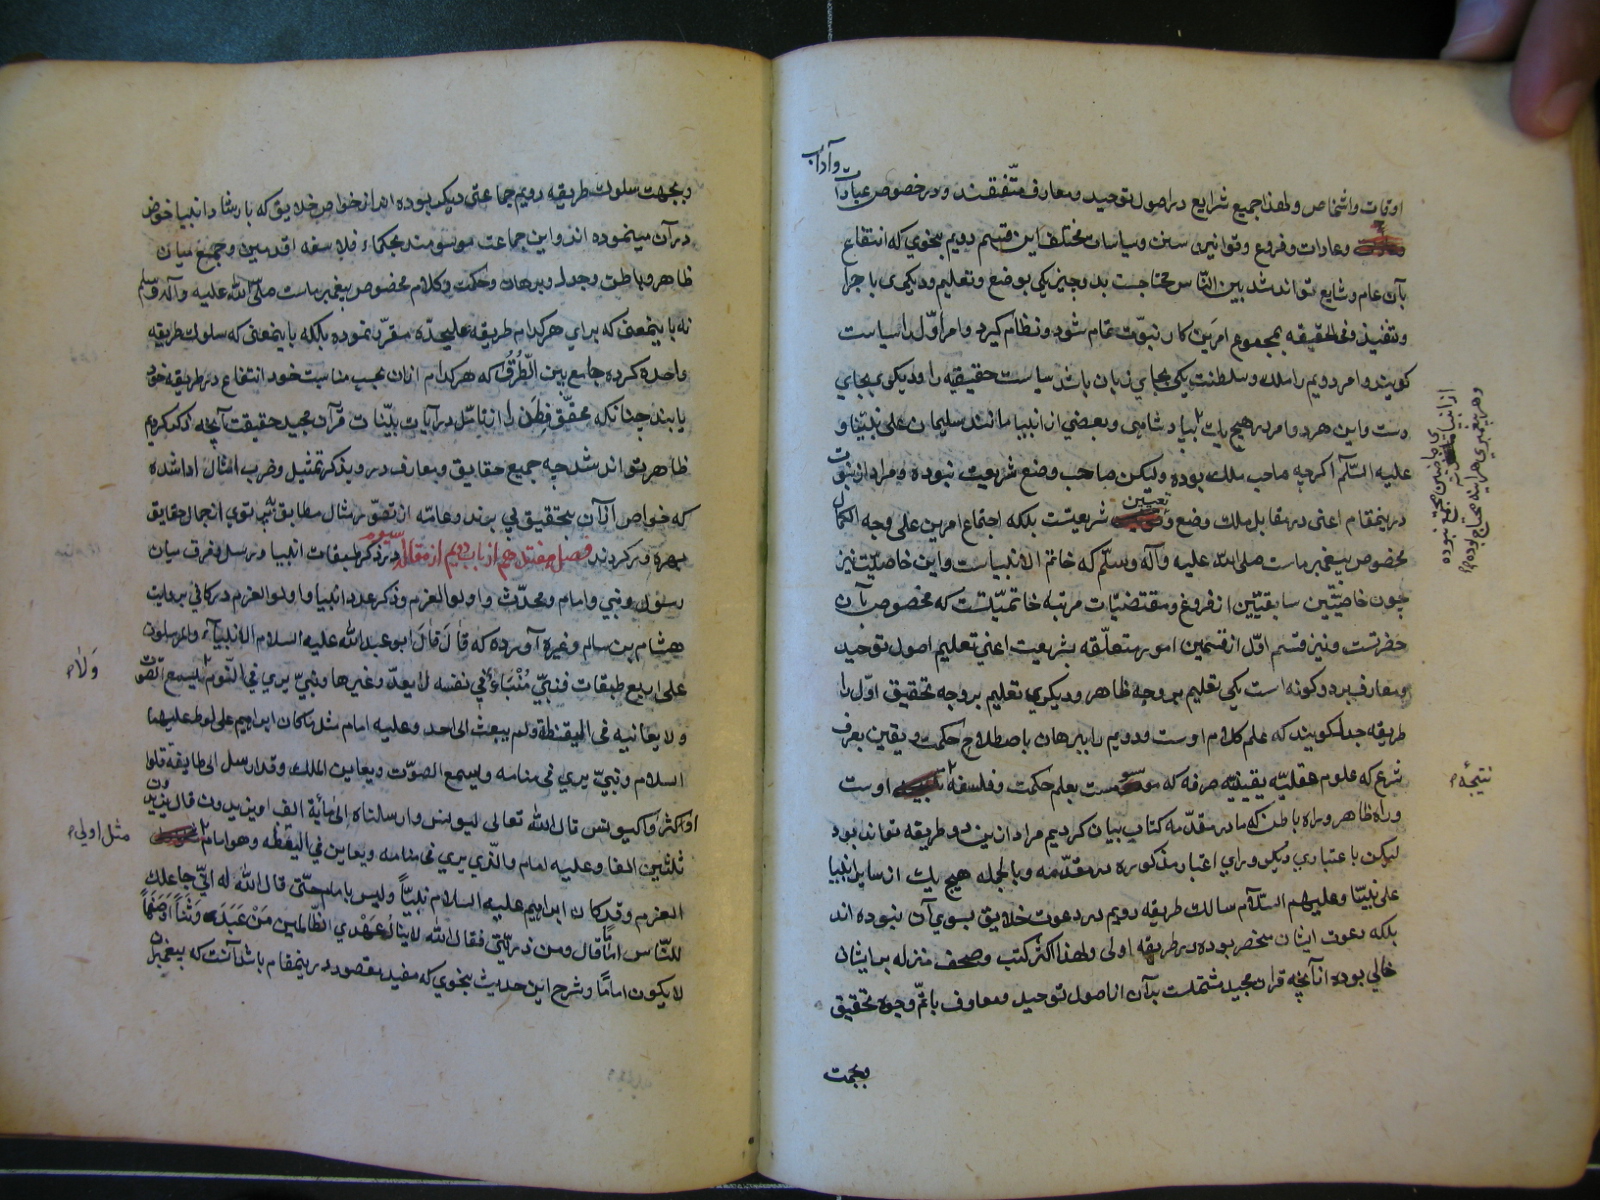 اوقات واشخاص ولهذا جمیع شرایع در اصول توحید ومعارف متّفقند ودر خصوص عبادات
وآداب
وعادات وفروع وقوانین سنن وسیاسات مختلف این قسم دویم بنحوی که انتفاع
بآن عام وشایع تواند شد بین النّاس محتاجست بدو چیز یکی بوضع وتعلیم ودیکری باجرا
وتنفیذ وفی الحقیقه بمجموع امرین کار نبوّت تمام شود ونظام کیرد وامر اوّل را سیاست
کویند وامر دویم را ملك وسلطنت یکی بجای زبان باشد سیاست حقیقیه را ودیکری بجای
دست واین هر دو امر در هیچ یك
وبعضی از انبیا مانند سلیمان علی نبیّنا و
علیه السّلام اکرچه صاحب ملك بوده ولیکن صاحب وضع شریعت نبوده ومراد از نبوّت
درینمقام اعنی در مقابل ملك وضع و
تعیین
شریعتست بلکه اجتماع امرین علی وجه الکمال
مخصوص پیغمبر ماست صلی الله علیه وآله وسلّم که خاتم الانبیاست واین خاصیّت نیز
چون خاصیّتین سابقتین از فروغ ومقتضیّات مرتبه خاتمیّتست که مخصوص بآن
حضرتست ونیز قسم اوّل از قسمین امور متعلّقه بشریعت اعنی تعلیم اصول توحید
ومعارف بر دو کونه است یکی تعلیم بر وجه ظاهر ودیکری تعلیم بر وجه تحقیق اوّل را
طریقه جدل کویند که علم کلام اوست ودویم را برهان باصطلاح حکمت ویقین بعرف
شرع که علوم عقلیّه یقینیّه صرفه که موسومست بعلم حکمت وفلسفه
اوست
نتیجهٔ
وراه ظاهر وراه باطن که ما در مقدّمه کتاب بیان کردیم مراد ازین دو طریقه تواند بود
لیکن باعتباری دیکر ورای اعتبار مذکوره در مقدّمه وبالجمله هیچ یك از سایر انبیا
علی نبیّنا وعلیهم السّلام سالك طریقه دویم در دعوت خلایق بسوی آن نبوده اند
بلکه دعوت ایشان منحصر بوده در طریقه اولی ولهذا اکثر کتب وصحف منزله بر ایشان
خالی بوده از آنچه قران مجید مشتملست بدآن از اصول توحید ومعارف باتمّ وجوه تحقیق
وبجهت
وبجهت سلوك طریقه دویم جماعتی دیکر بوده اند از خواص خلایق که بارشاد انبیا خوض
در آن مینموده اند واین جماعت موسومند بحکماء وفلاسفه اقدمین وجمع میان
ظاهر وباطن وجدل وبرهان وحکمت وکلام مخصوص پیغمبر ماست صلّی الله علیه وآله وسلم
نه باینمعنی که برای هر کدام طریقه علیحدّه مقرّر نموده بلکه باینمعنی که سلوك طریقه
واحده کرده جامع بین الطُرُق که هر کدام از آن بحسب مناسبت خود انتفاع در طریقه خود
یابند چنانکه محقّق فطن را از تأمّل در آیات بیّنات قرآن مجید حقیقت آنچه ذکر کردیم
ظاهر تواند شد چه جمیع حقایق ومعارف درو بذکر تمثیل وضرب المثال ادا شده
که خواص از آن بتحقیق پی برند وعامّه از تصوّر مثال مطابق
حقایق
بهره ور کردند فصل هفتم از باب دویم از مقاله سیوم در ذکر طبقات انبیا ورسل وفرق میان
رسول ونبی وامام ومحدّث واولوالعزم وذکر عدد انبیا واولوالعزم در کافی بروایت
هشام بن سالم وغیره آورده که قال قال ابوعبدالله علیه السلام الانبیآء والمرسلون
علی اربع طبقات فنبیّ مُنْبَاءٌ فی نفسه لایعدّ وغیرها ونبیّ یری فی النّوم ویسمع الصّوت
ولا یعاینه فی الیقظة ولم یبعث الی احد وعلیه امام مثل ما کان ابراهیم علی لوط علیهما
السلام ونبیّ یری فی منامه ویسمع الصّوت ویعاین الملك وقد ارسل الی طایفة قلوا
اوکثروا کیونس قال الله تعالی لیونس وارسلناه الی مأیة الف اویزیدون قال یزیدون
ثلثین الفا وعلیه امام والّذی یری فی منامه ویعاین فی الیقظه وهو امام
مثل اولی
العزم وقد کان ابراهیم علیه السلام نبیّاً ولیس بامام حتّی قال الله له انّی جاعلك
للنّاس اماماً قال ومن ذرّیّتی فقال الله لاینال عَهْدی الظّالمین مَنْ عَبَدَ صنماً او وثناً
لا یکون اماماً وشرح این حدیث بنحوی که مفید مقصود درینمقام باشد آنست که پیغمبر